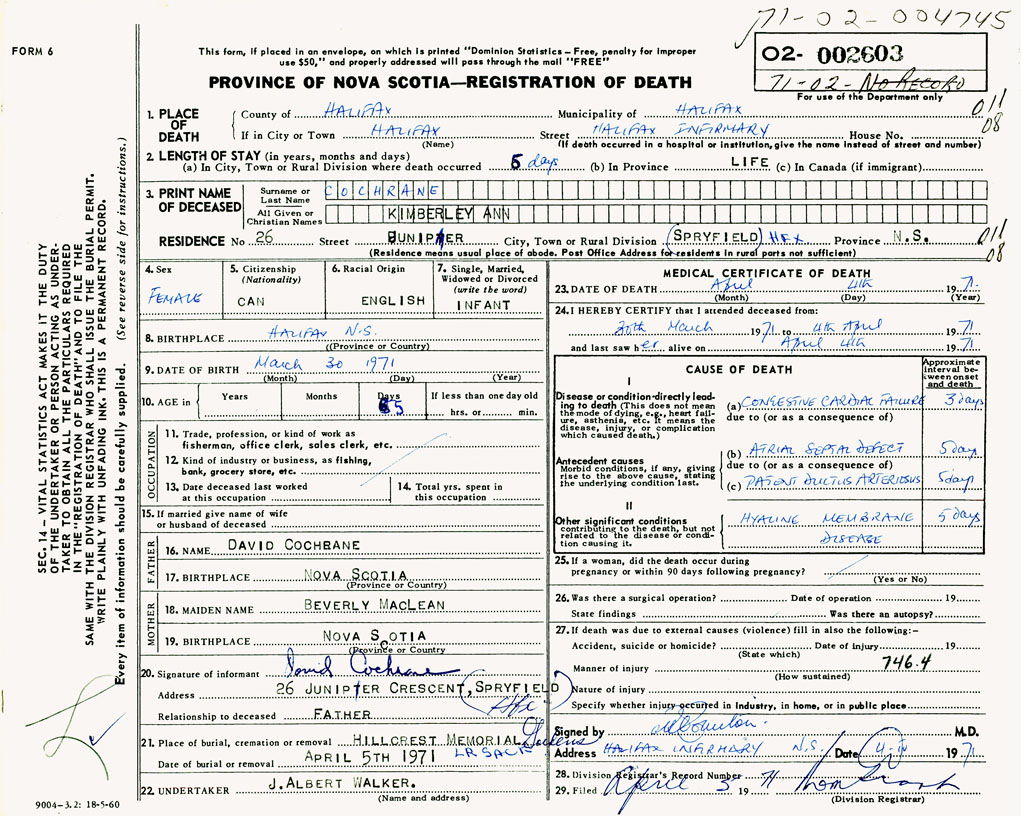 71-02-004745
FORM 6
This form, if placed in an envelope, on which is printed "Dominion Statistics – Free, penalty for improper
use $50," and properly addressed will pass through the mail "FREE"
02- 002603
71-02- No Record
For use of the Department only
PROVINCE OF NOVA SCOTIA—REGISTRATION OF DEATH
011
08
1. PLACE OF DEATH
County of HALIFAX Municipality of HALIFAX
If in City or Town HALIFAX Street HALIFAX INFIRMARY House No.
(Name) (If death occurred in a hospital or institution, give the name instead of street and number)
2. LENGTH OF STAY (in years, months and days)
(a) In City, Town or Rural Division where death occurred 5 days (b) In Province LIFE (c) In Canada (if immigrant)
3. PRINT NAME OF DECEASED
Surname or Last Name COCHRANE
All Given or Christian Names KIMBERLEY ANN
RESIDENCE No 26 Street JUNIPER City, Town or Rural Division (SPRYFIELD) HFX Province N.S.
011
08
(Residence means usual place of abode. Post Office Address for residents in rural parts not sufficient)
4. Sex FEMALE
5. Citizenship (Nationality) CAN
6. Racial Origin ENGLISH
7. Single, Married, Widowed or Divorced (write the word) INFANT
8. BIRTHPLACE HALIFAX N.S.
((Province or Country)
9. DATE OF BIRTH March 30 1971
(Month) (Day) (Year)
10. AGE in Years Months Days 5 If less than one day old
hrs. or min.
OCCUPATION
11. Trade, profession, or kind of work as
fisherman, office clerk, sales clerk, etc.
12. Kind of industry or business, as fishing,
bank, grocery store, etc.
13. Date deceased last worked
at this occupation
14. Total yrs. spent in
this occupation
15. If married give name of wife
or husband of deceased
FATHER
16. NAME DAVID COCHRANE
17. BIRTHPLACE NOVA SCOTIA
(Province or Country)
MOTHER
18. MAIDEN NAME BEVERLY MACLEAN
19. BIRTHPLACE NOVA SCOTIA
(Province or Country)
20. Signature of informant David Cochrane
Address 26 JUNIPER CRESCENT, (SPRYFIELD)
Hfx
Relationship to deceased FATHER
21. Place of burial, cremation or removal HILLCREST MEMORIAL Gardens
LR SACK
Date of burial or removal APRIL 5TH 1971
22. UNDERTAKER J. ALBERT WALKER.
(Name and address)
MEDICAL CERTIFICATE OF DEATH
23. DATE OF DEATH April 4th 1971.
(Month) (Day) (Year)
24. I HEREBY CERTIFY that I attended deceased from:
30th March 1971 to 4th April 1971
and last saw her alive on April 4th 1971
CAUSE OF DEATH
Approximate interval between onset and death
I
Disease or condition directly leading to death (This does not mean the mode of dying, e.g., heart failure, asthenia, etc. It means the disease, injury, or complication which caused death.)
(a) CONGESTIVE CARDIAL FAILURE 3 days
due to (or as a consequence of)
Antecedent causes
Morbid conditions, if any, giving rise to the above cause, stating the underlying condition last.
(b) ATRIAL SEPTAL DEFECT 5 days
due to (or as a consequence of)
(c) PATENT DUCTUS ARTERIOSUS 5 days
II
Other significant conditions
contributing to the death, but not related to the disease or condition causing it.
HYALINE MEMBRANE 5 days
DISEASE
25. If a woman, did the death occur during
pregnancy or within 90 days following pregnancy?
(Yes or No)
26. Was there a surgical operation? Date of operation 19
State findings Was there an autopsy?
27. If death was due to external causes (violence) fill in also the following:–
Accident, suicide or homicide? Date of injury 19
(State which)
746.4
Manner of injury
(How sustained)
Nature of injury
Specify whether injury occurred in industry, in home, or in public place
Signed by M.D.
Address HALIFAX INFIRMARY N.S. Date 4-IV 1971
28. Division Registrar's Record Number
29. Filed April 5 1971
(Division Registrar)
SEC. 14 – VITAL STATISTICS ACT MAKES IT THE DUTY
OF THE UNDERTAKER OR PERSON ACTING AS UNDER-
TAKER TO OBTAIN ALL THE PARTICULARS REQUIRED
IN THE "REGISTRATION OF DEATH" AND TO FILE THE
SAME WITH THE DIVISION REGISTRAR WHO SHALL ISSUE THE BURIAL PERMIT.
WRITE PLAINLY WITH UNFADING INK. THIS IS A PERMANENT RECORD.
Every item of information should be carefully supplied. (See reverse side for instructions.)
9004-3.2: 18-5-60